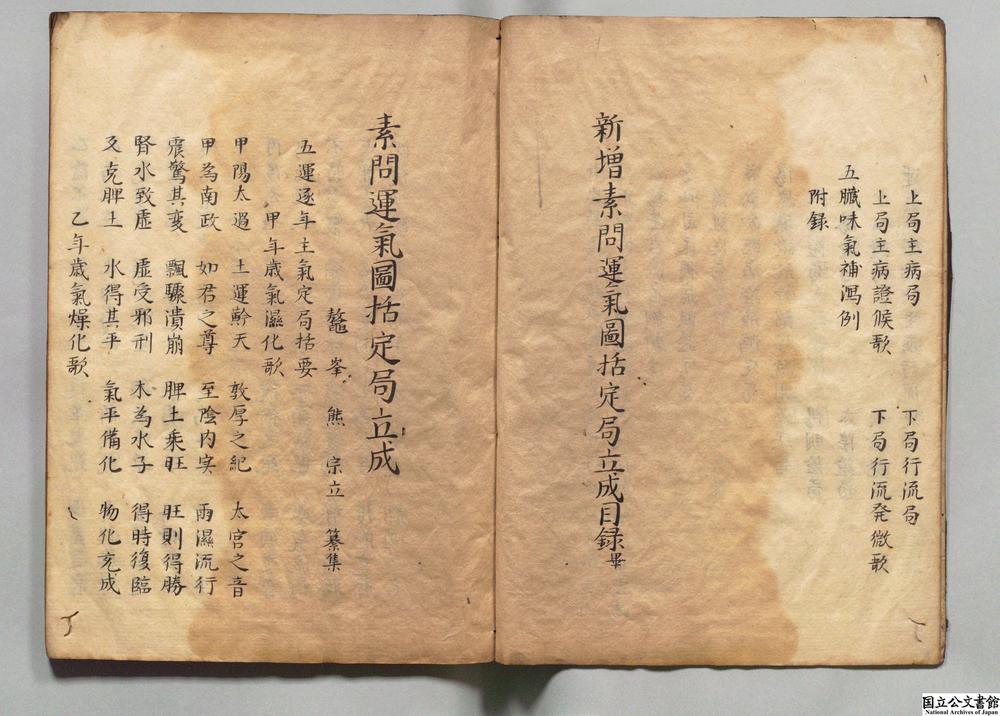 上局主病局　下局行流局
上局主病證候歌　下局行流発微歌
五臓味氣補瀉例
附録
新增素問運氣圖括定局立成目録畢
素問運氣圖括定局立成
鼇峯熊宗立纂集
五運逐年主氣定局括要
甲年歲氣濕化歌
甲陽太過　土運斡天　敦厚之紀　太宮之音
甲為南政　如君之尊　至陰内实　雨濕流行
震驚其变　飄驟潰崩　脾土乘旺　旺則得勝
腎水致虚　虚受邪刑　木為水子　得時復臨
反克脾土　水得其平　氣平備化　物化充成
乙年歲氣燥化歌
国立公文書館
National Archives of Japan